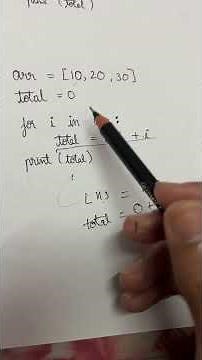 print (total)
arr = [10,20,30]
total = 0
for i in :
total = + i
print (total)
LHS =
total = 0 +